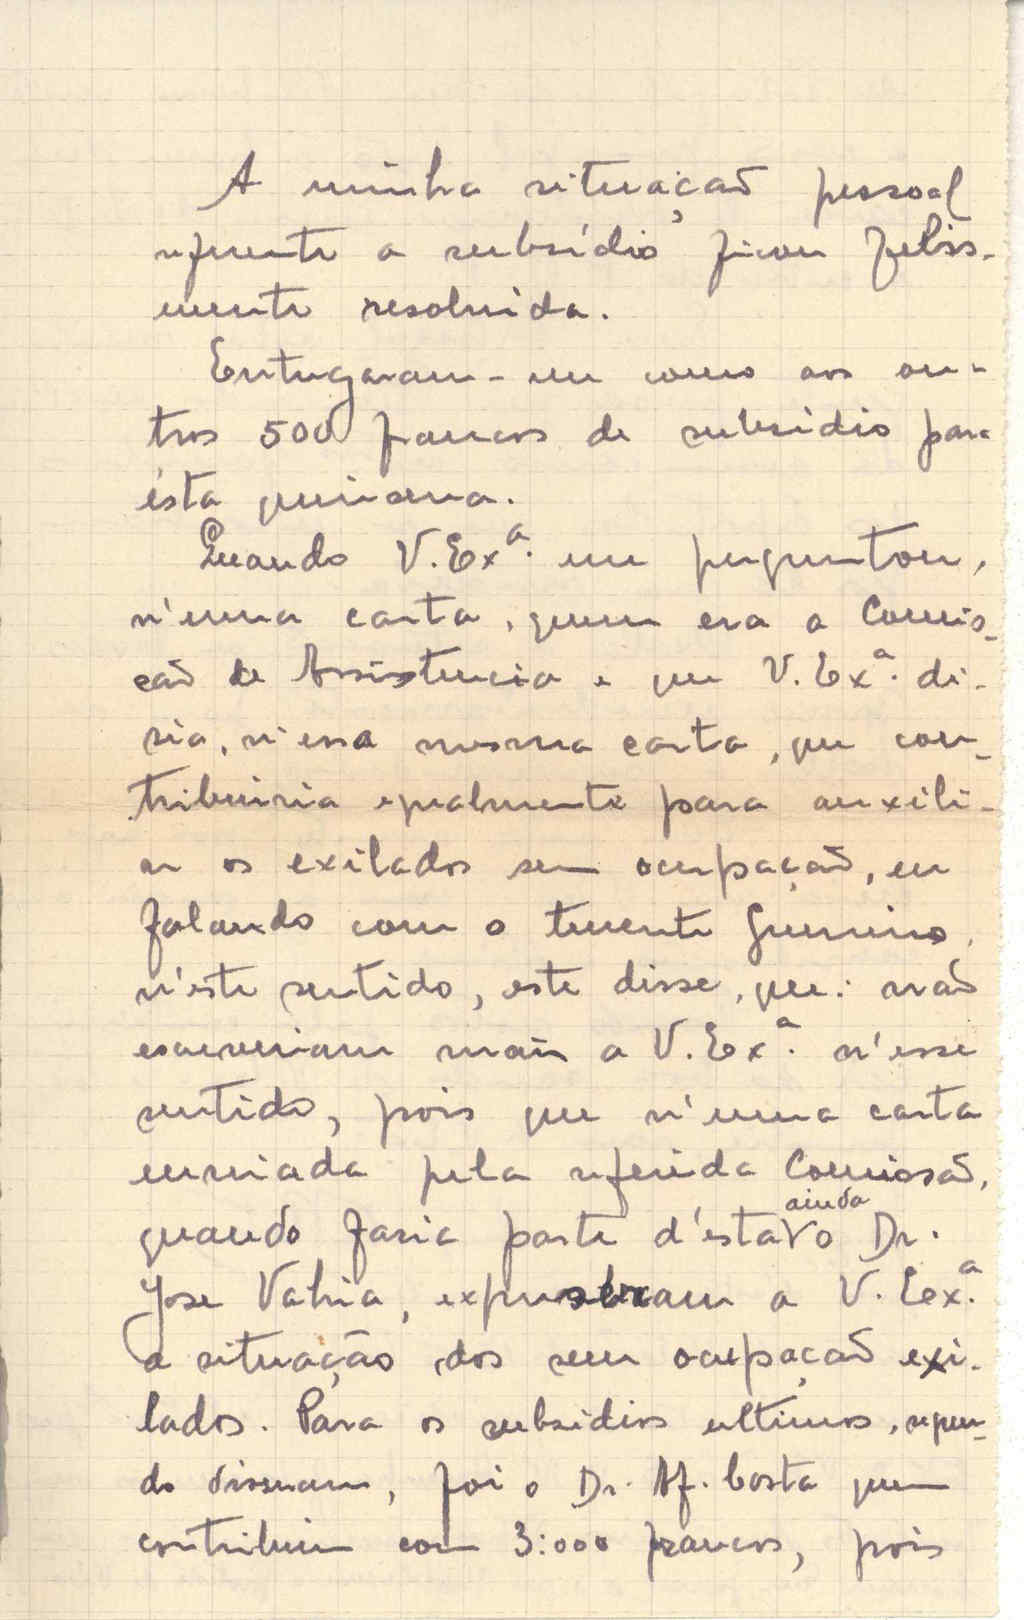 A minha situação pessoal
referente a subsídio ficou felis-
mente resolvida.
Entregaram-me como aos ou-
tros 500 francos de subsidio para
ésta quinsena.
Quando V. Exª. me perguntou,
n'uma carta, quem era a Comis-
saõ de Assistencia e que V. Exª. di-
sia, n'essa mesma carta, que con-
tribuiria egualmente para auxili-
ar os exilados sem ocupaçaõ, eu
falando com o tenente
n'este sentido, este disse, que: naõ
escreveriam mais a V. Exª. n'esse
sentido, pois que n'uma carta
enviada pela referida Comissaõ,
quando fasia parte d'ésta ainda o Dr.
Jose Vahia, expuseram a V. Eex.ª
a situação dos sem ocupaçaõ exi-
lados. Para os subsidios ultimos, segun-
do disseram, foi o Dr. Af. Costa quem
contribuiu com 3:000 francos, pois